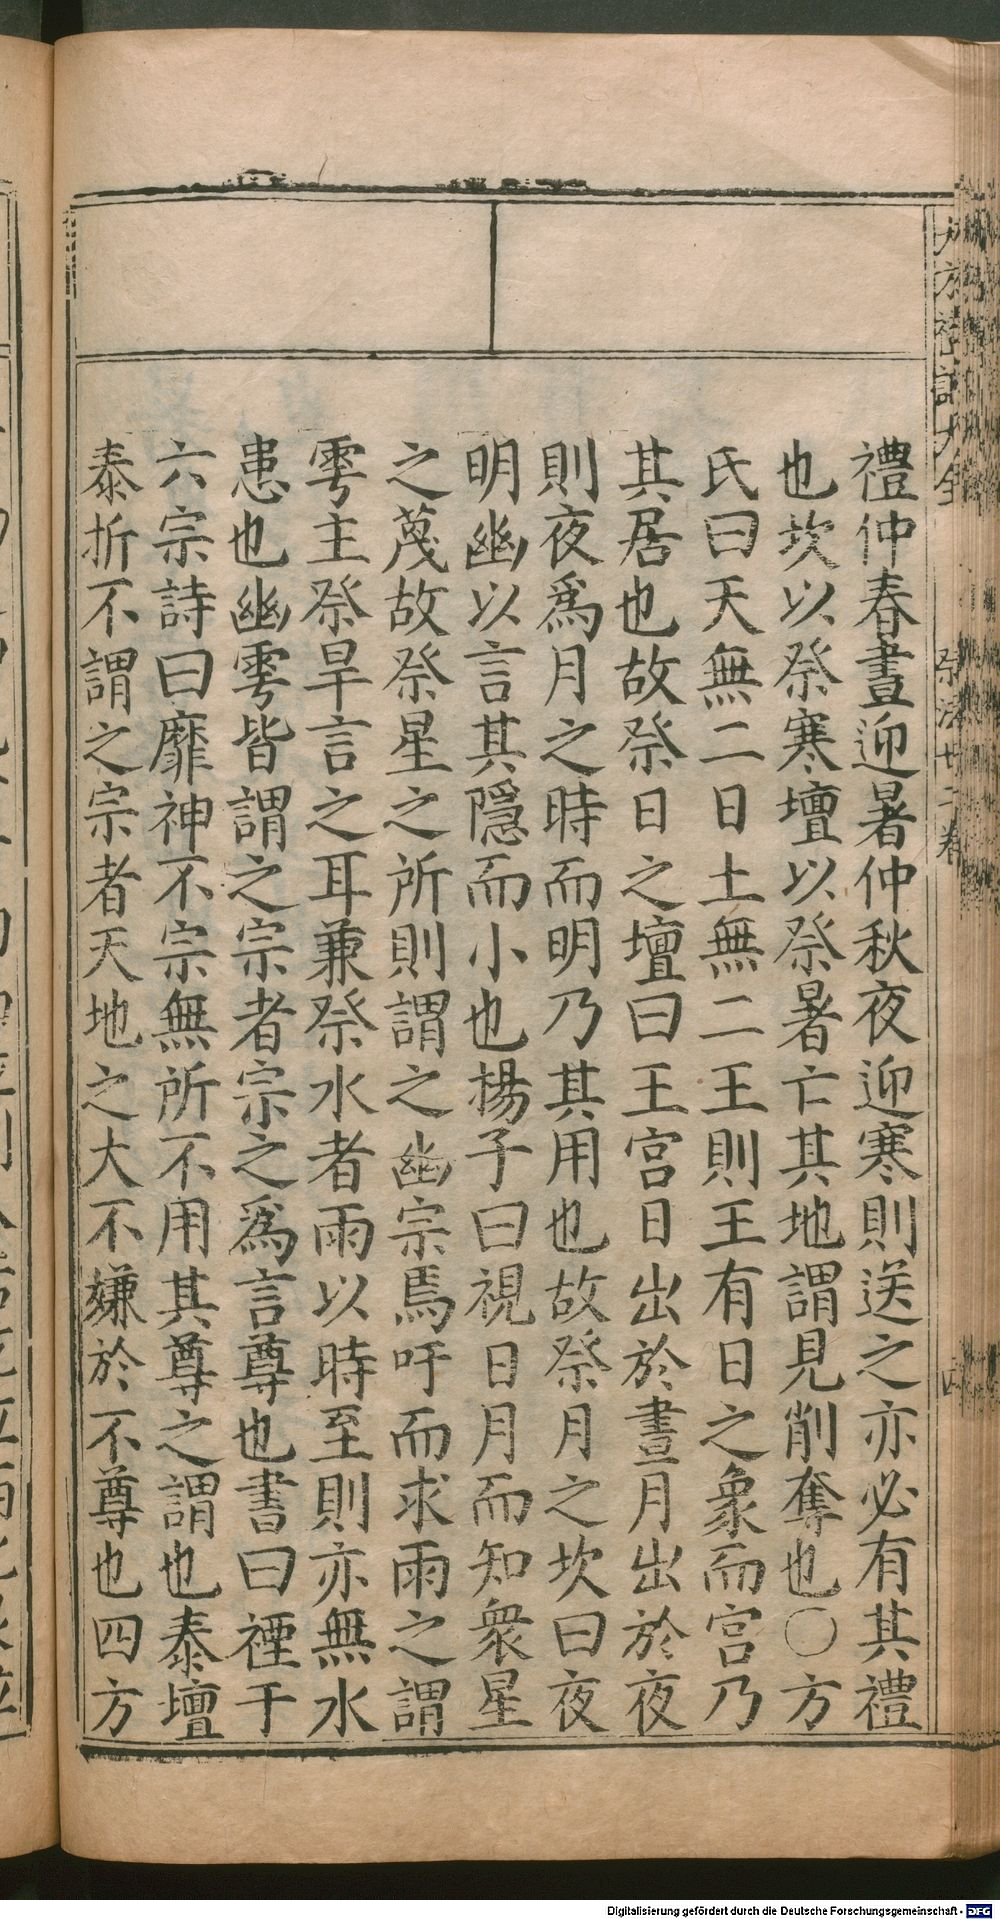 禮仲春晝迎暑仲秋夜迎寒則送之亦必有其禮
也坎以祭寒壇以祭暑亡其地謂見削奪也〇方
氏曰天無二日土無二王則王有日之象而宮乃
其居也故祭日之壇曰王宮日出於晝月出於夜
則夜爲月之時而明乃其用也故祭月之坎曰夜
明幽以言其隱而小也楊子曰視日月而知衆星
之蔑故祭星之所則謂之幽宗焉吁而求雨之謂
雩主祭旱言之耳兼祭水者雨以時至則亦無水
患也幽雩皆謂之宗者宗之爲言尊也書曰禋于
六宗詩曰靡神不宗無所不用其尊之謂也泰壇
泰折不謂之宗者天地之大不嫌於不尊也四方
祭法廿二卷
Digitalisierung gefördert durch die Deutsche Forschungsgemeinschaft - DFG